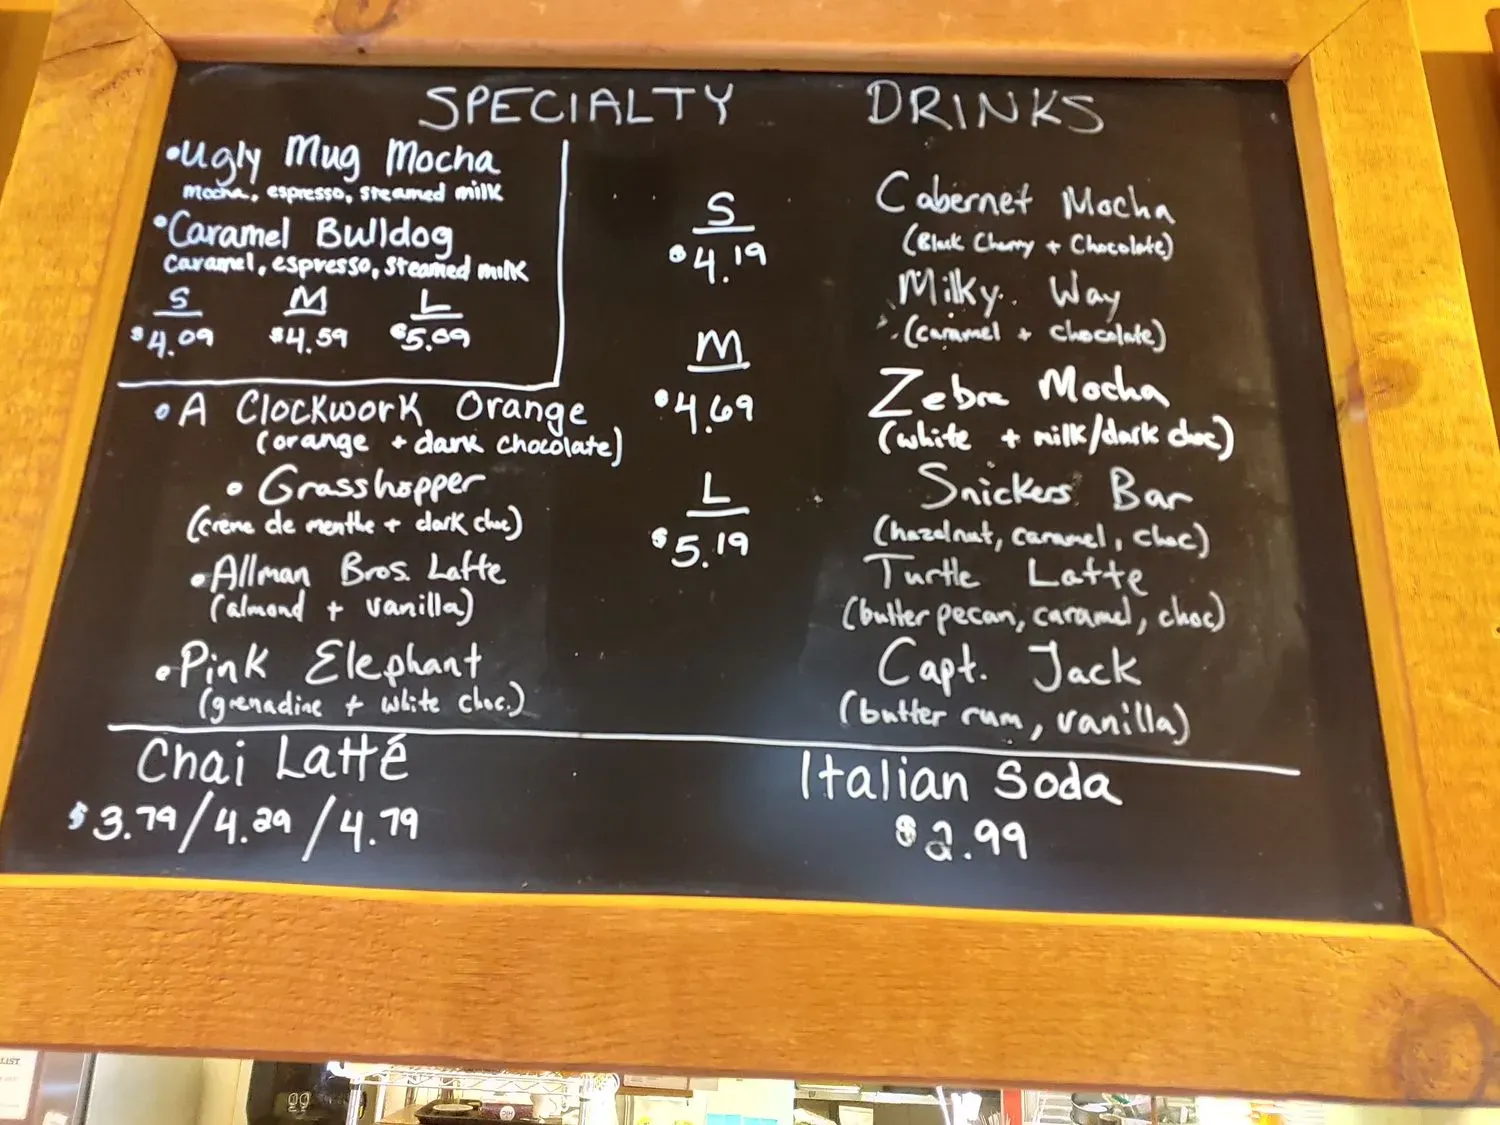 SPECIALTY DRINKS
•Ugly Mug Mocha
mocha, espresso, steamed milk
•Caramel Bulldog
Caramel, espresso, steamed milk
S M L
$4.09 $4.59 $5.09
• A Clockwork Orange
(orange + dark chocolate)
• Grasshopper
(creme de menthe + dark choc)
•Allman Bros. Latte
(almond + vanilla)
•Pink Elephant
(grenadine + white choc.)
S
$4.19
M
$4.69
L
$5.19
Cabernet Mocha
(Black Cherry + Chocolate)
Milky Way
(caramel + chocolate)
Zebra Mocha
(white + milk/dark choc)
Snickers Bar
(hazelnut, caramel, choc)
Turtle Latte
(butter pecan, caramel, choc)
Capt. Jack
(butter rum, vanilla)
Chai Latté
$3.79/4.29/4.79
Italian Soda
$2.99